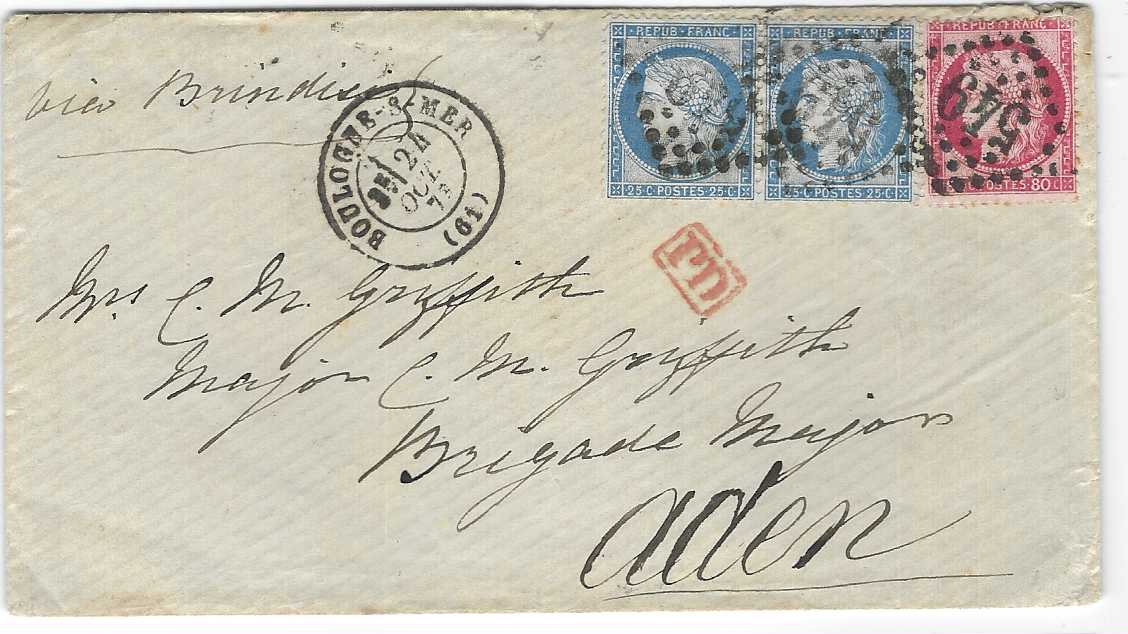 REPUB·FRANC
REPUB·FRANC
REPUB·FRANC
25·C·POSTES·25·C
25·C·POSTES·25·C
POSTES·80·C
549
via Brindisi
BOULOGNE-S-MER
24
OCT
73
(61)
PD
Mrs C. M. Griffith
Major C. M. Griffith
Brigade Major
Aden